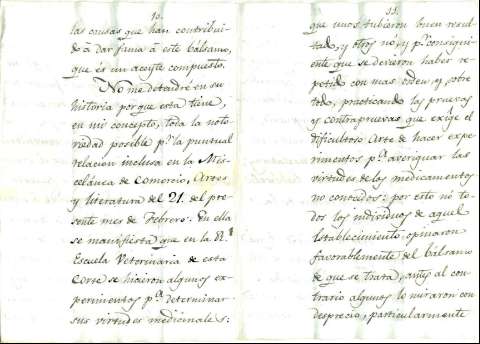 10.
las causas que han contribui-
do a dar fama á este bálsamo,
que és un aceyte compuesto.
No me detendré en su
historia porque esta tiene,
en mi concepto, toda la noto-
riedad posible pr. la puntual
relacion inclusa en la Mis-
celánea de Comercio, Artes
y literatura del 21. del pre-
sente mes de Febrero. En ella
se manifiesta que en la Rl.
Escuela Veterinaria de esta
Corte se hicieron algunos ex-
perimentos pa. determinar
sus virtudes medicinales:
11.
que unos tubieron buen resul-
tado, y otros nó, y pr. consiguien-
te que se devieron haber re-
petido con mas orden, y, sobre
todo, practicando las pruevas
y contrapruevas que exige el
dificultoso Arte de hacer expe-
rimentos pa. averiguar las
virtudes de los medicamentos
no conocidos: por esto no to-
dos los individuos de aquel
establecimiento opinaron
favorablemente del bálsamo
de que se trata, antes al con-
trario algunos lo miraron con
desprecio, particularmente